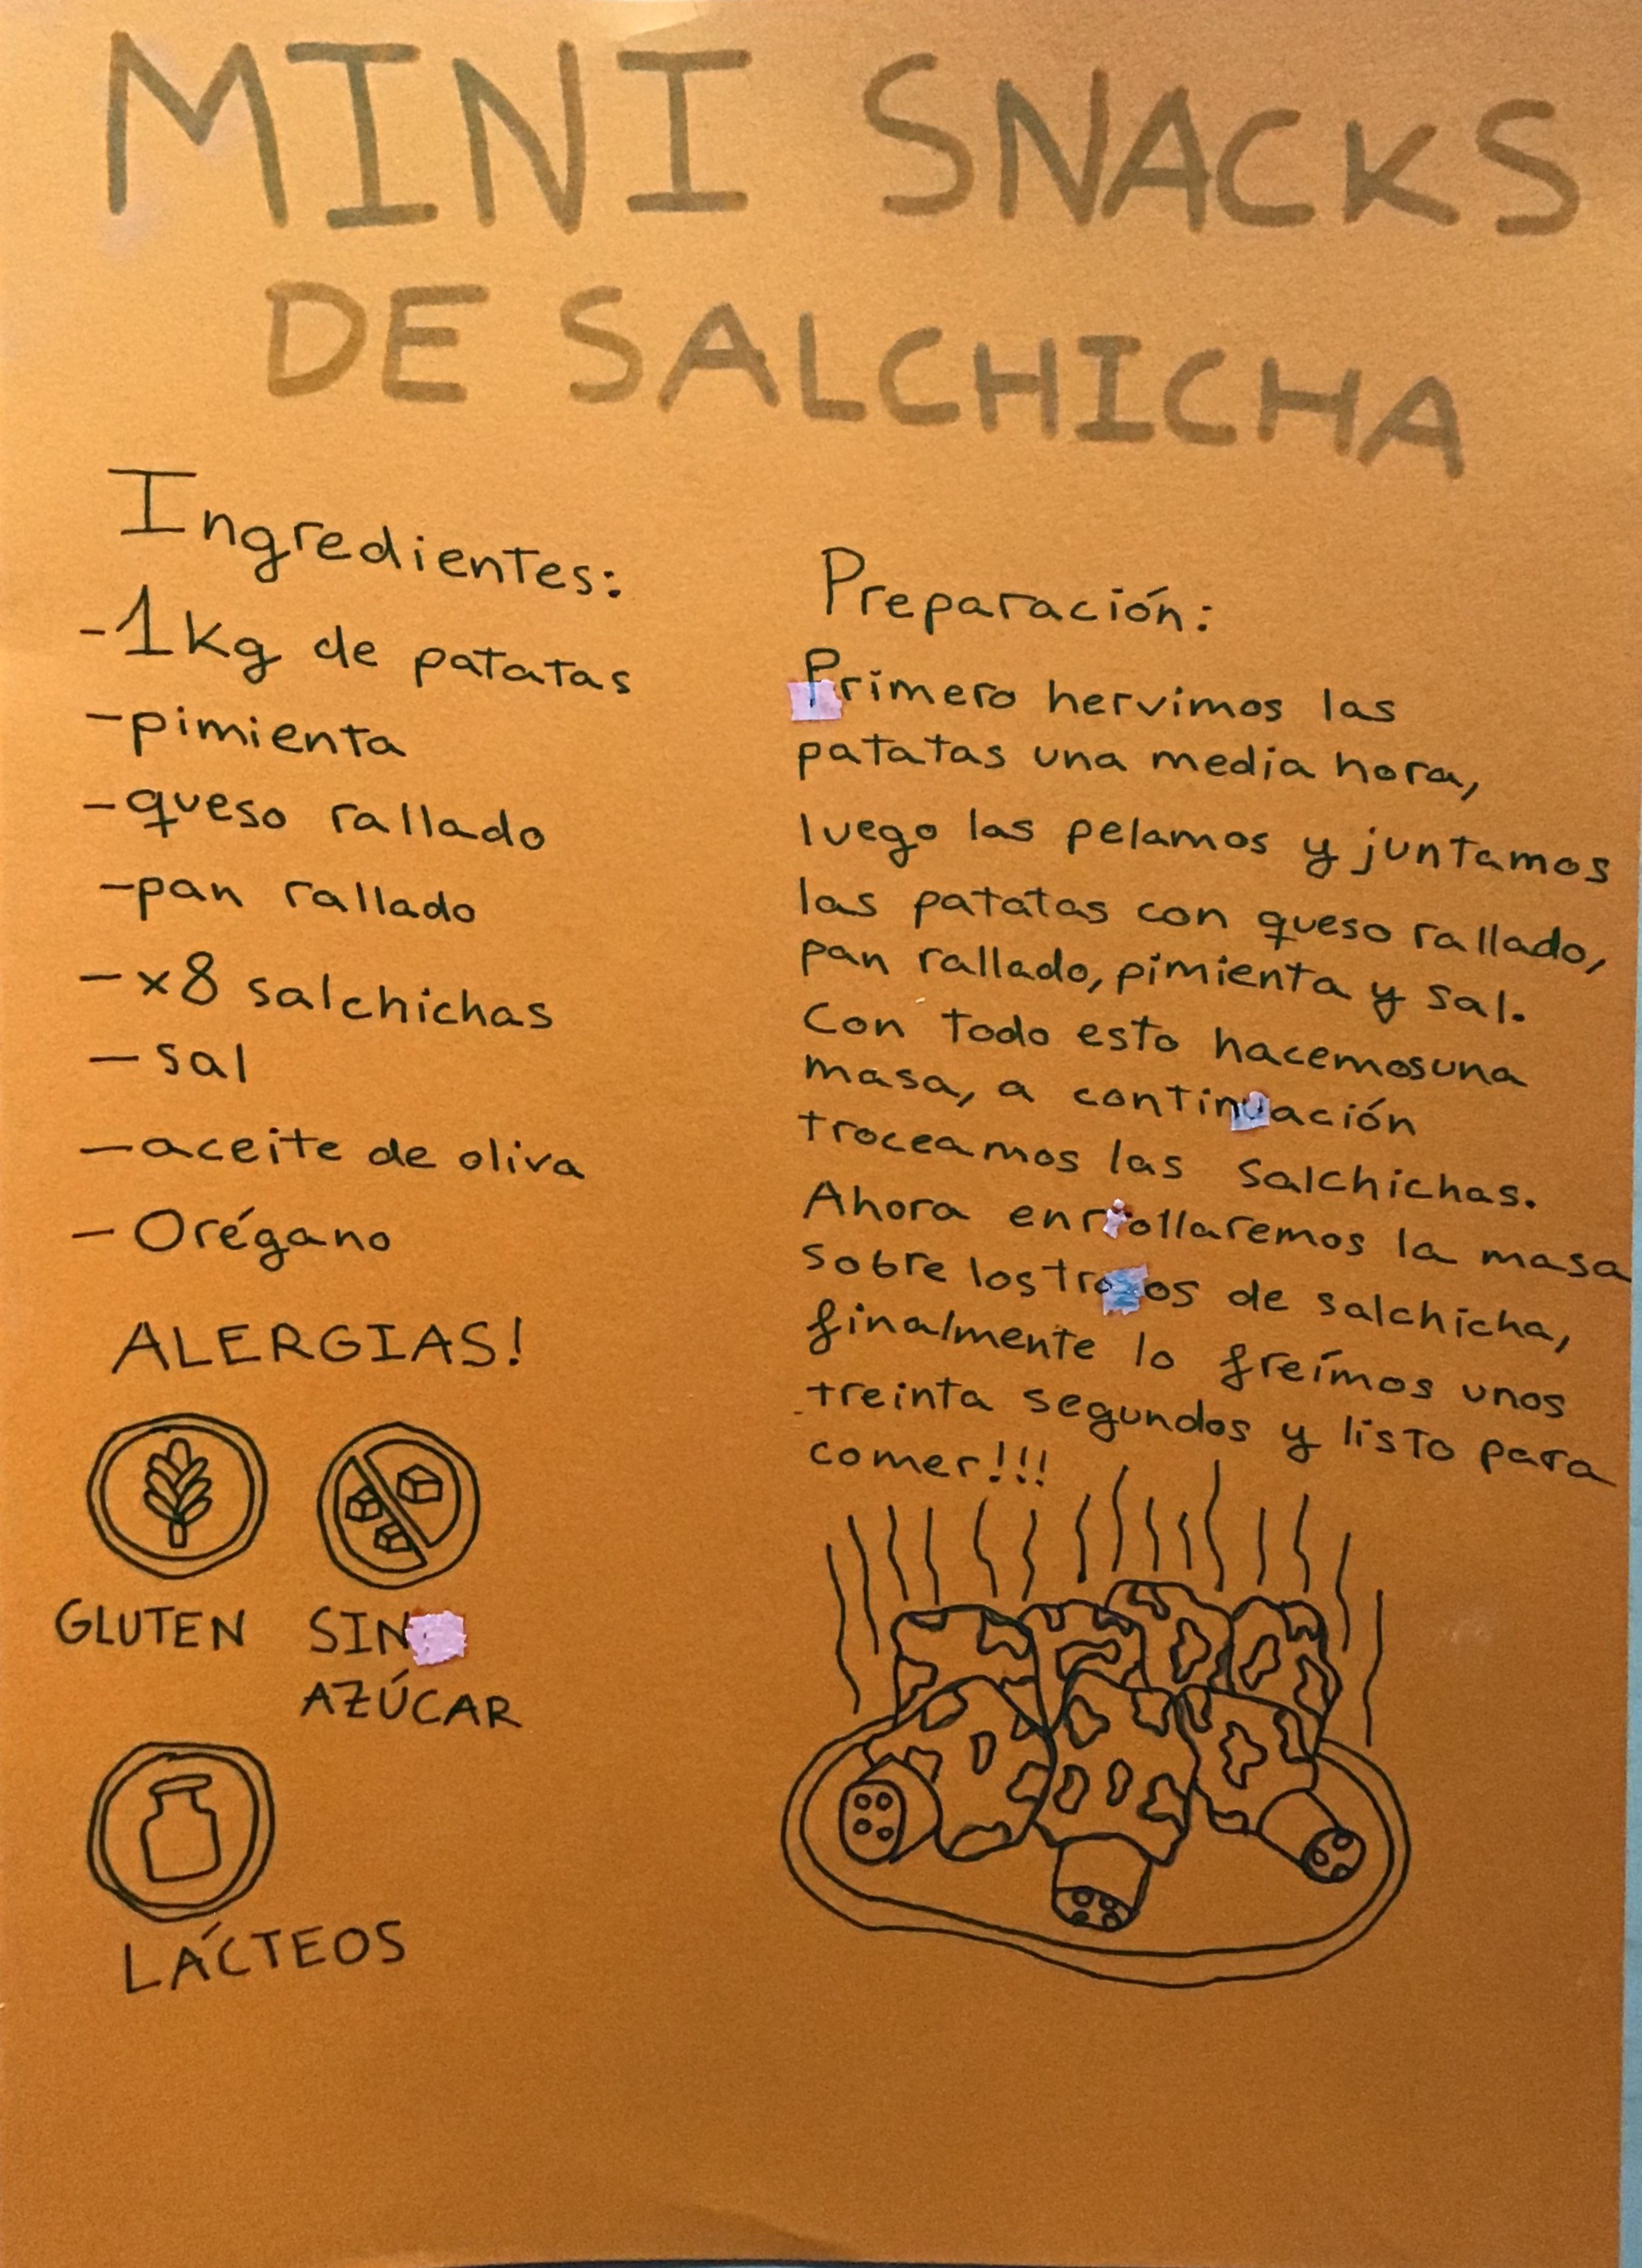 MINI SNACKS
DE SALCHICHA
Ingredientes:
-1kg de patatas
-pimienta
-queso rallado
-pan rallado
-x8 salchichas
-sal
-aceite de oliva
-Orégano
ALERGIAS!
GLUTEN
SIN
AZÚCAR
LÁCTEOS
Preparación:
Primero hervimos las
patatas una media hora,
luego las pelamos y juntamos
las patatas con queso rallado,
pan rallado, pimienta y sal.
Con todo esto hacemosuna
masa, a continuación
troceamos las salchichas.
Ahora enrollaremos la masa
sobre los trozos de salchicha,
finalmente lo freímos unos
treinta segundos y listo para
comer!!!